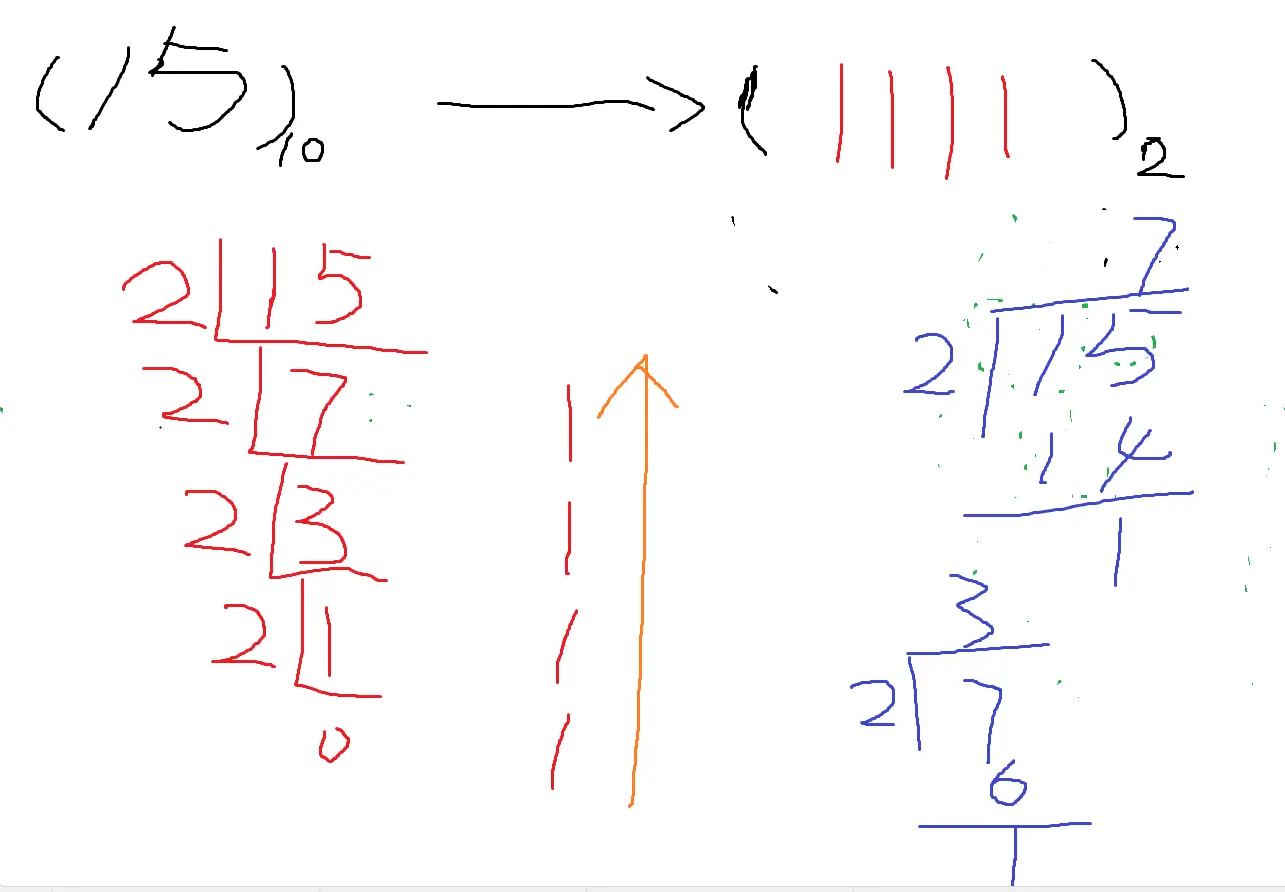 (15)10 → (1111)2
2 15
2 7 1
2 3 1
2 1 1
0 1
7
2 15
14
1
3
2 7
6
1